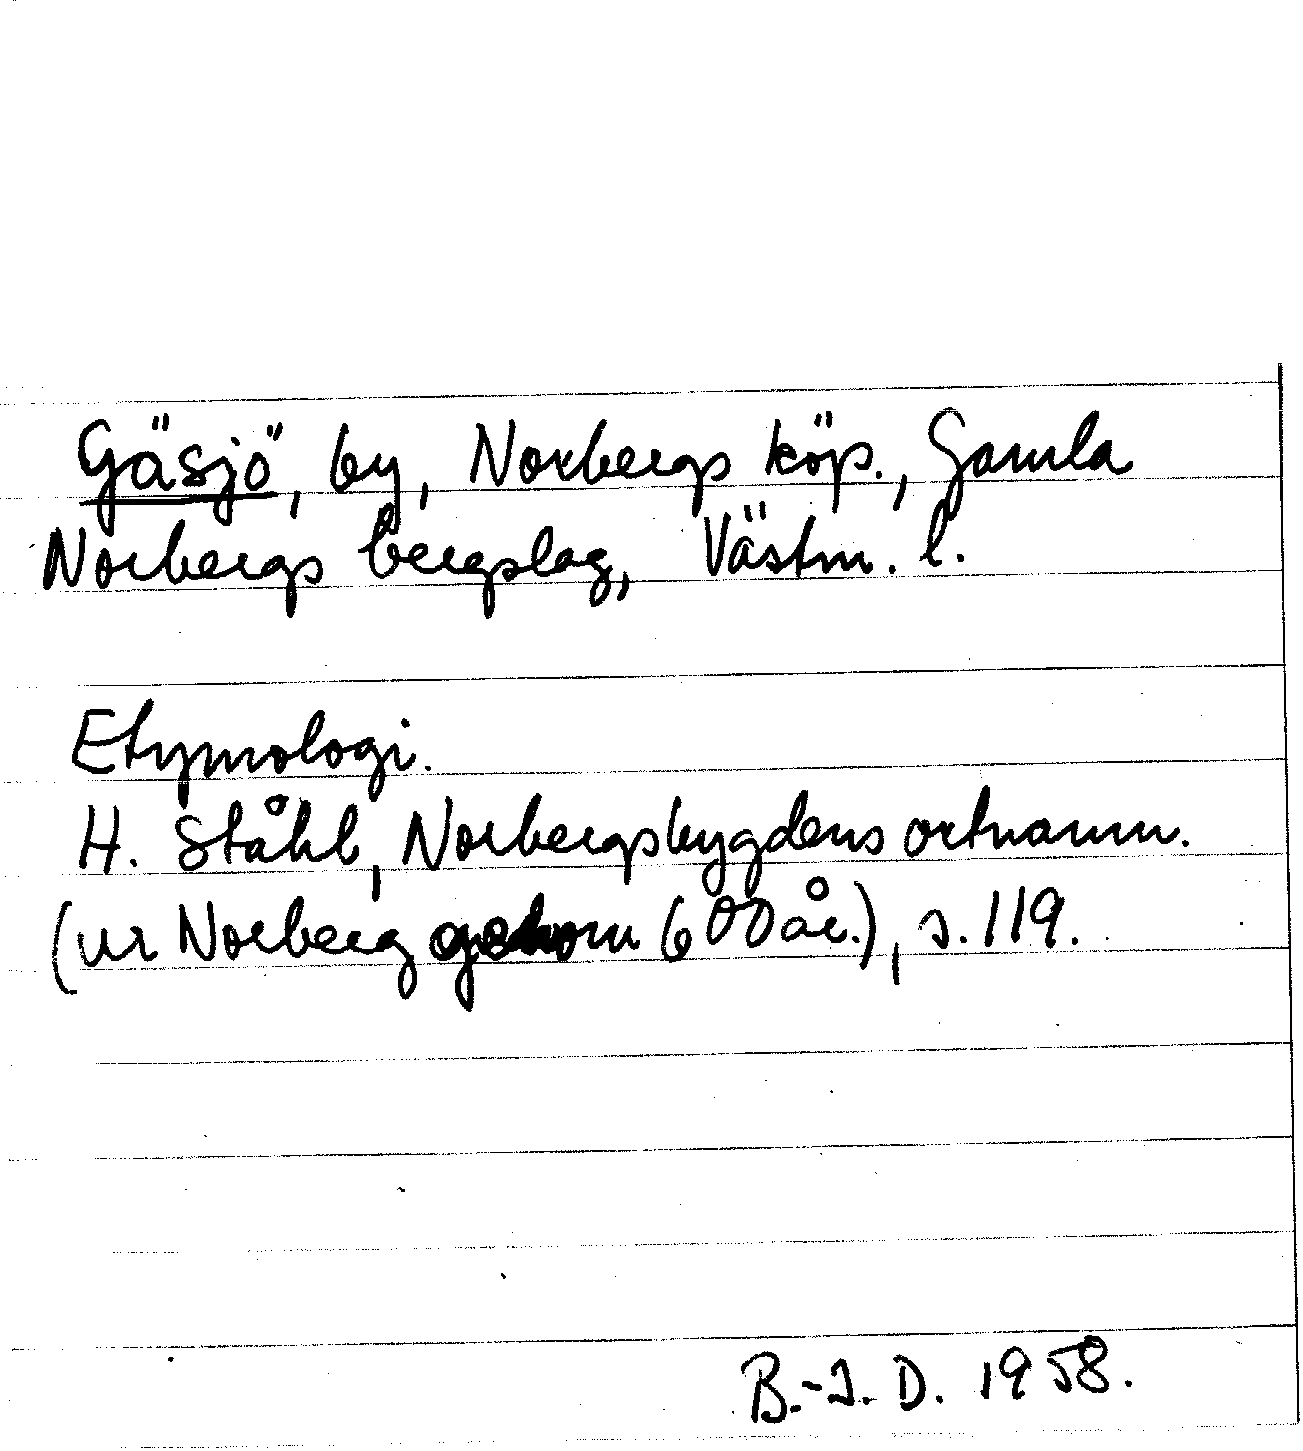 Gäsjö, by, Norbergs köp., Gamla
Norbergs bergslag, Västm. l.
Etymologi.
H. Ståhl, Norbergsbygdens ortnamn.
(ur Norberg genom 600 år.), s. 119.
B.-I. D. 1958.